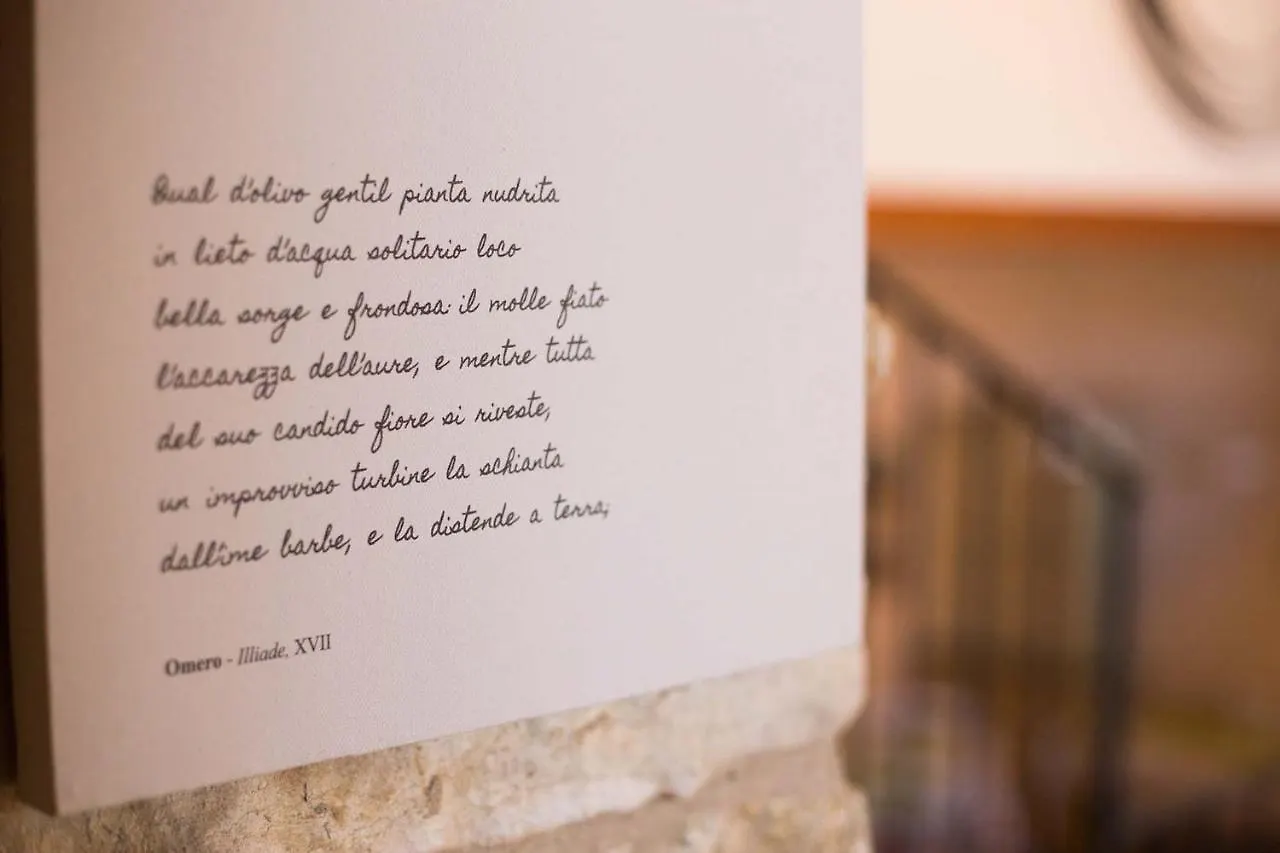 Qual d'olivo gentil pianta nudrita
in lieto d'acqua solitario loco
bella sorge e frondosa: il molle fiato
l'accarezza dell'aure, e mentre tutta
del suo candido fiore si riveste,
un improvviso turbine la schianta
dall'ime barbe, e la distende a terra;
Omero - Illiade, XVII